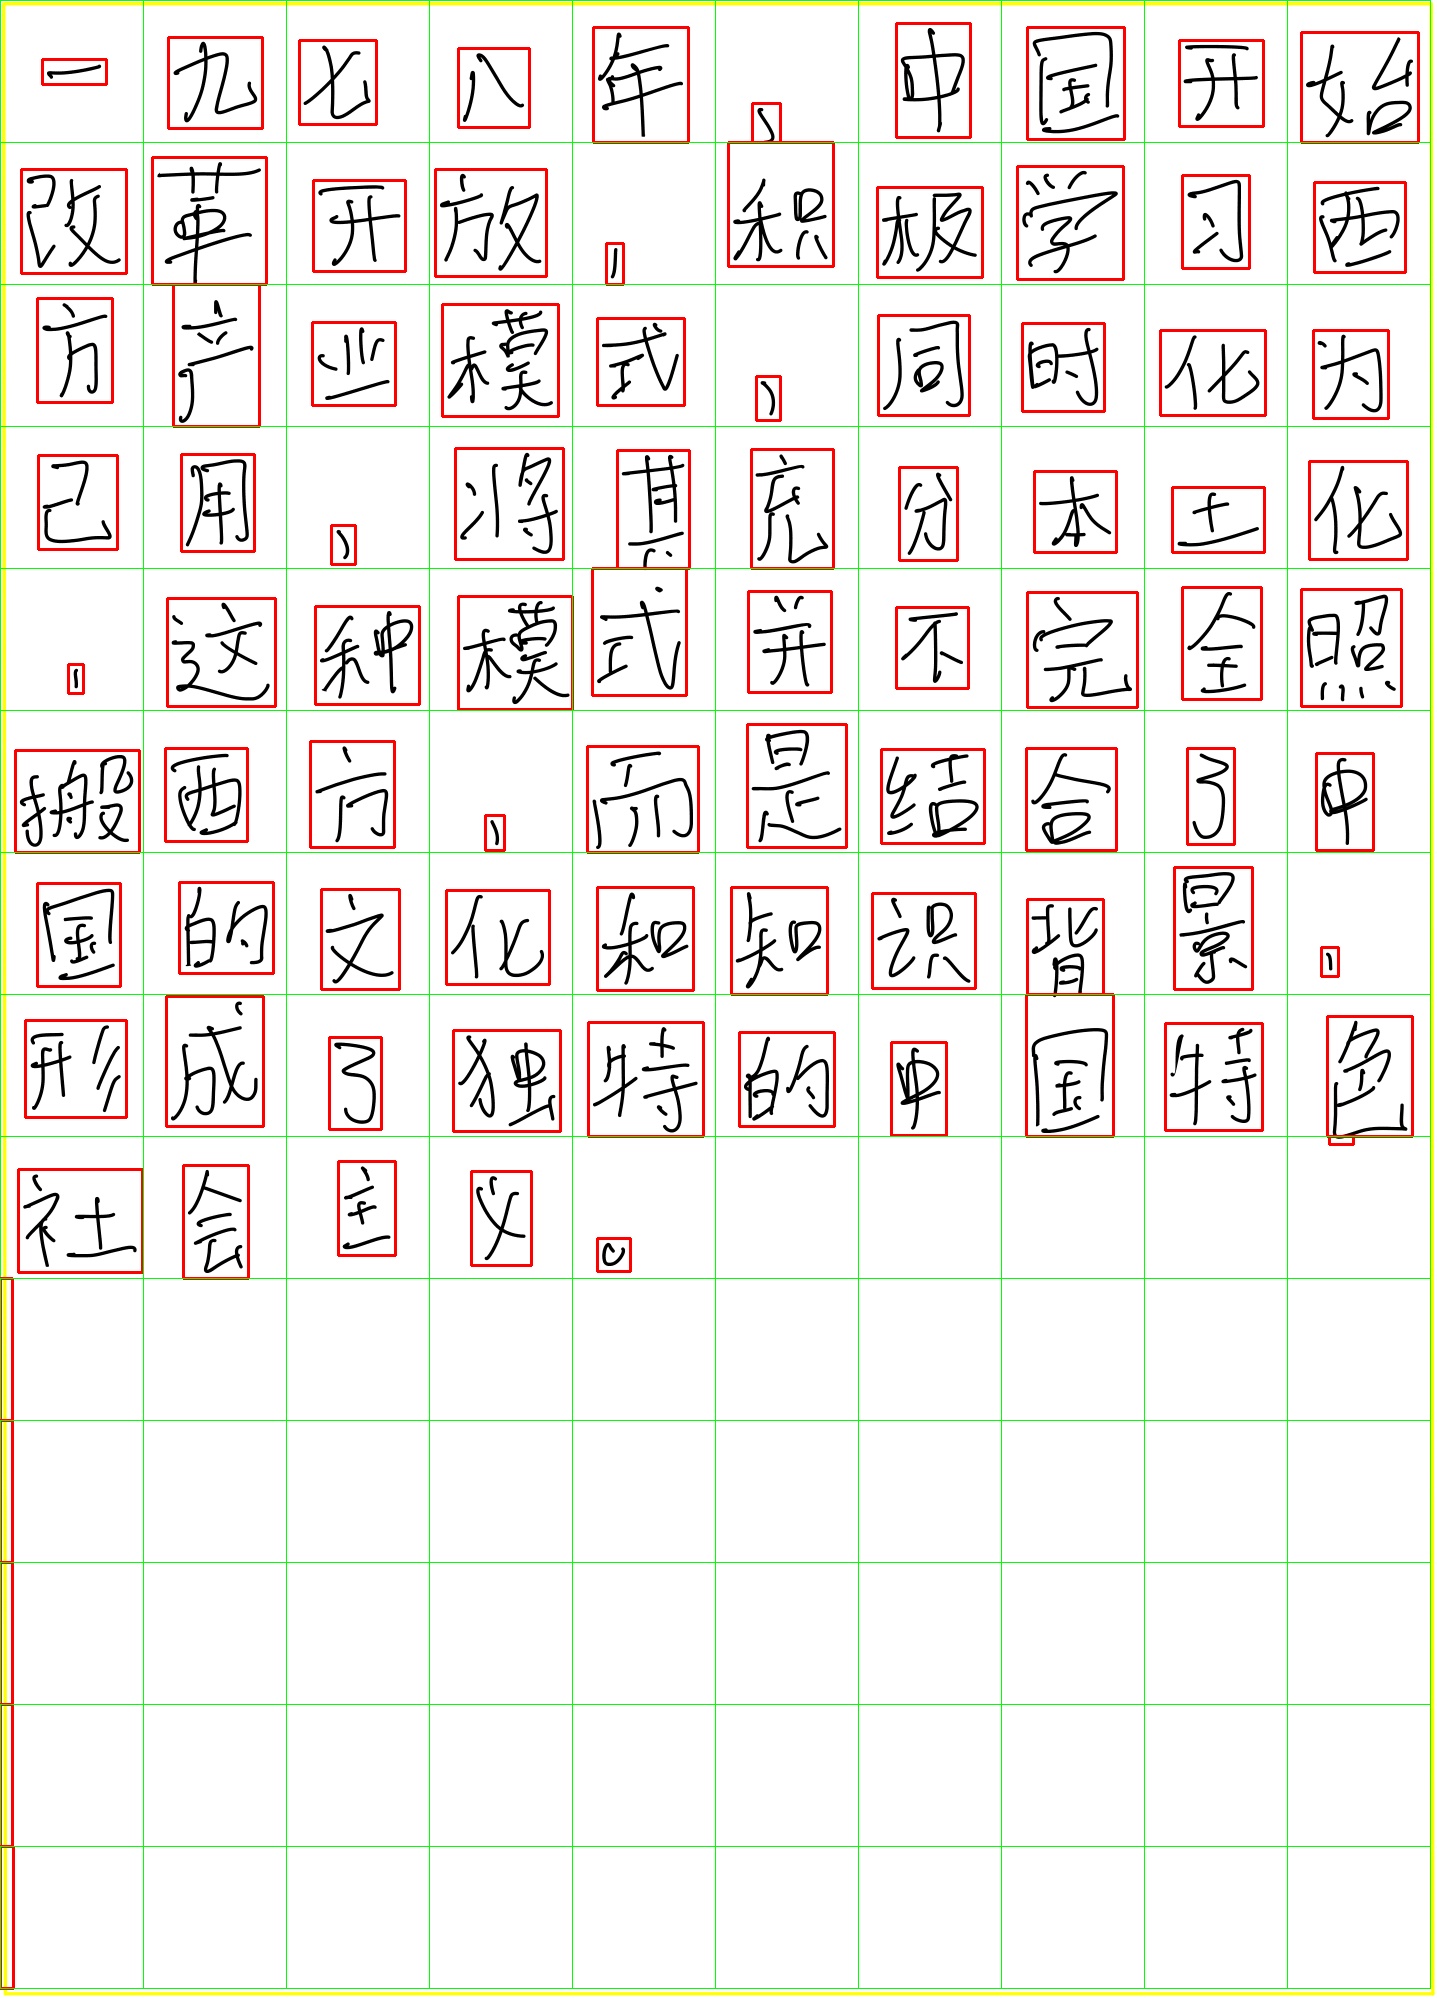 一九七八年，中国开始
改革开放，积极学习西
方产业模式，同时化为
己用，将其充分本土化
，这种模式并不完全照
搬西方，而是结合了中
国的文化和知识背景，
形成了独特的中国特色
社会主义。